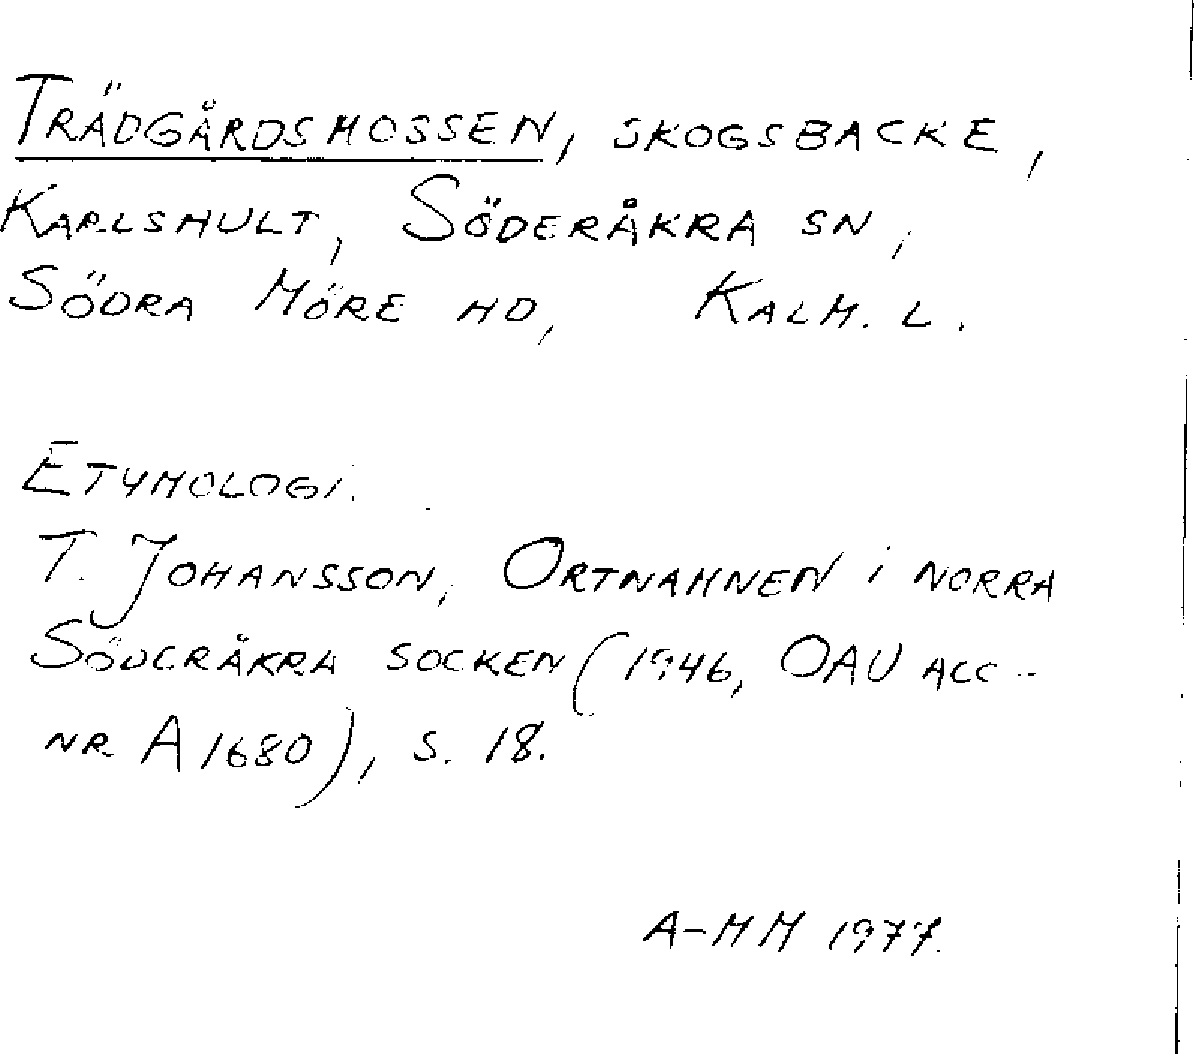 Trädgårdsmossen, skogsbacke,
Karlshult, Söderåkra sn,
Södra Möre hd, Kalm. l.
Etymologi.
T. Johansson, Ortnamnen i norra
Söderåkra socken (1946, OAU acc.
nr A 1680), s. 18.
A-MM 1977.